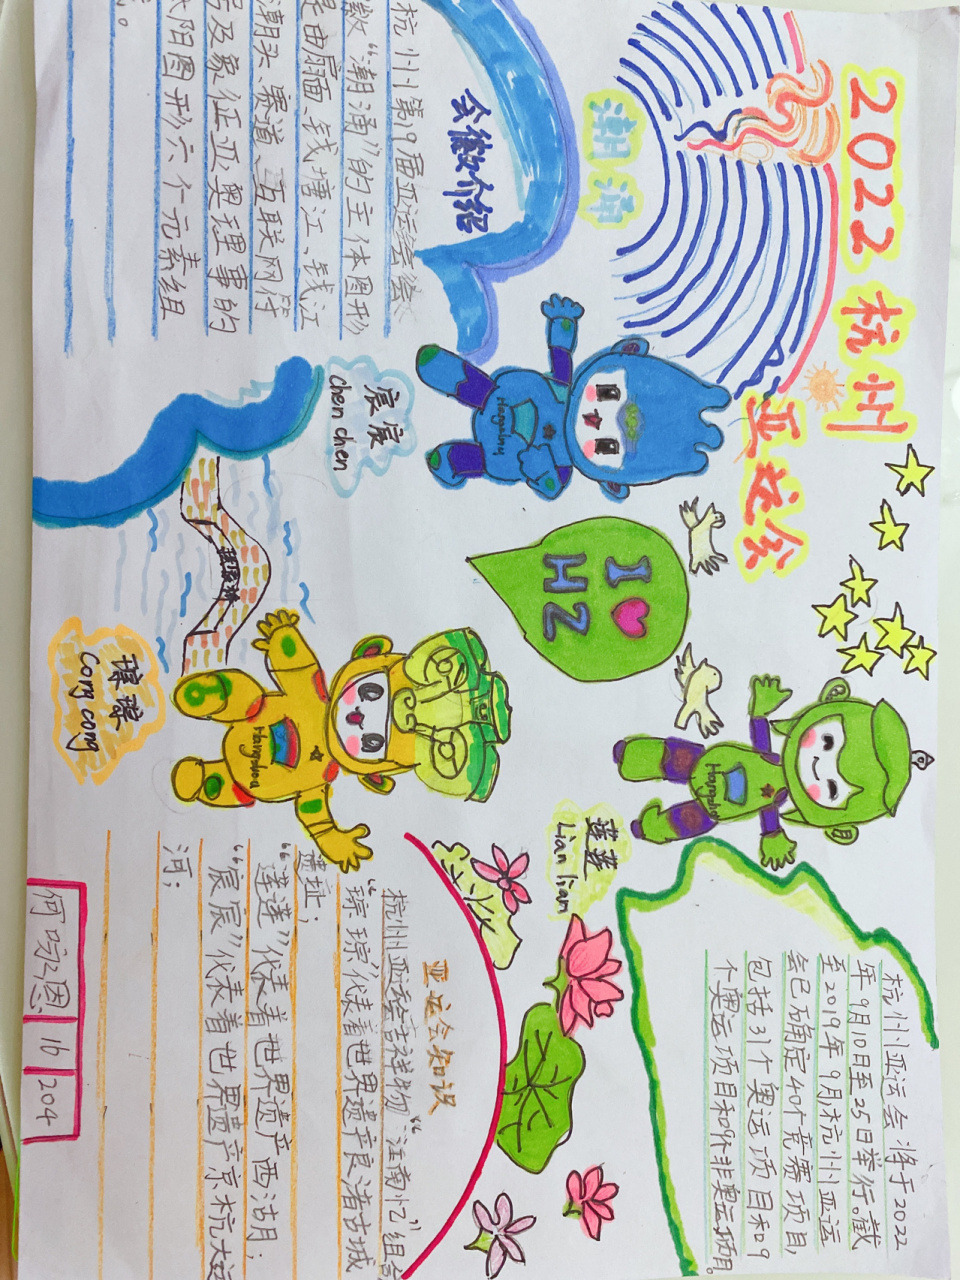 2022 杭州
亚运会
潮涌
I
HZ
Hangzhou
宸宸
chen chen
莲莲
Lian lian
Hangzhou
琮琮
Cong cong
拱宸桥
会徽介绍
杭州第19届亚运会会
徽“潮涌”的主体图形
是由扇面、钱塘江、钱江
潮头、赛道、互联网符
号及象征亚奥理事的
太阳图形六个元素组
成。
杭州亚运会将于2022
年9月10日至25日举行。截
至2019年9月杭州亚运
会已确定40个竞赛项目,
包括31个奥运项目和9
个奥运项目和9个非奥运项目。
亚运会知识
杭州亚运会吉祥物“江南忆”组合
“琮琮”代表着世界遗产良渚古城
遗址；
“莲莲”代表着世界遗产西湖；
“宸宸”代表着世界遗产京杭大运
河；
16
204